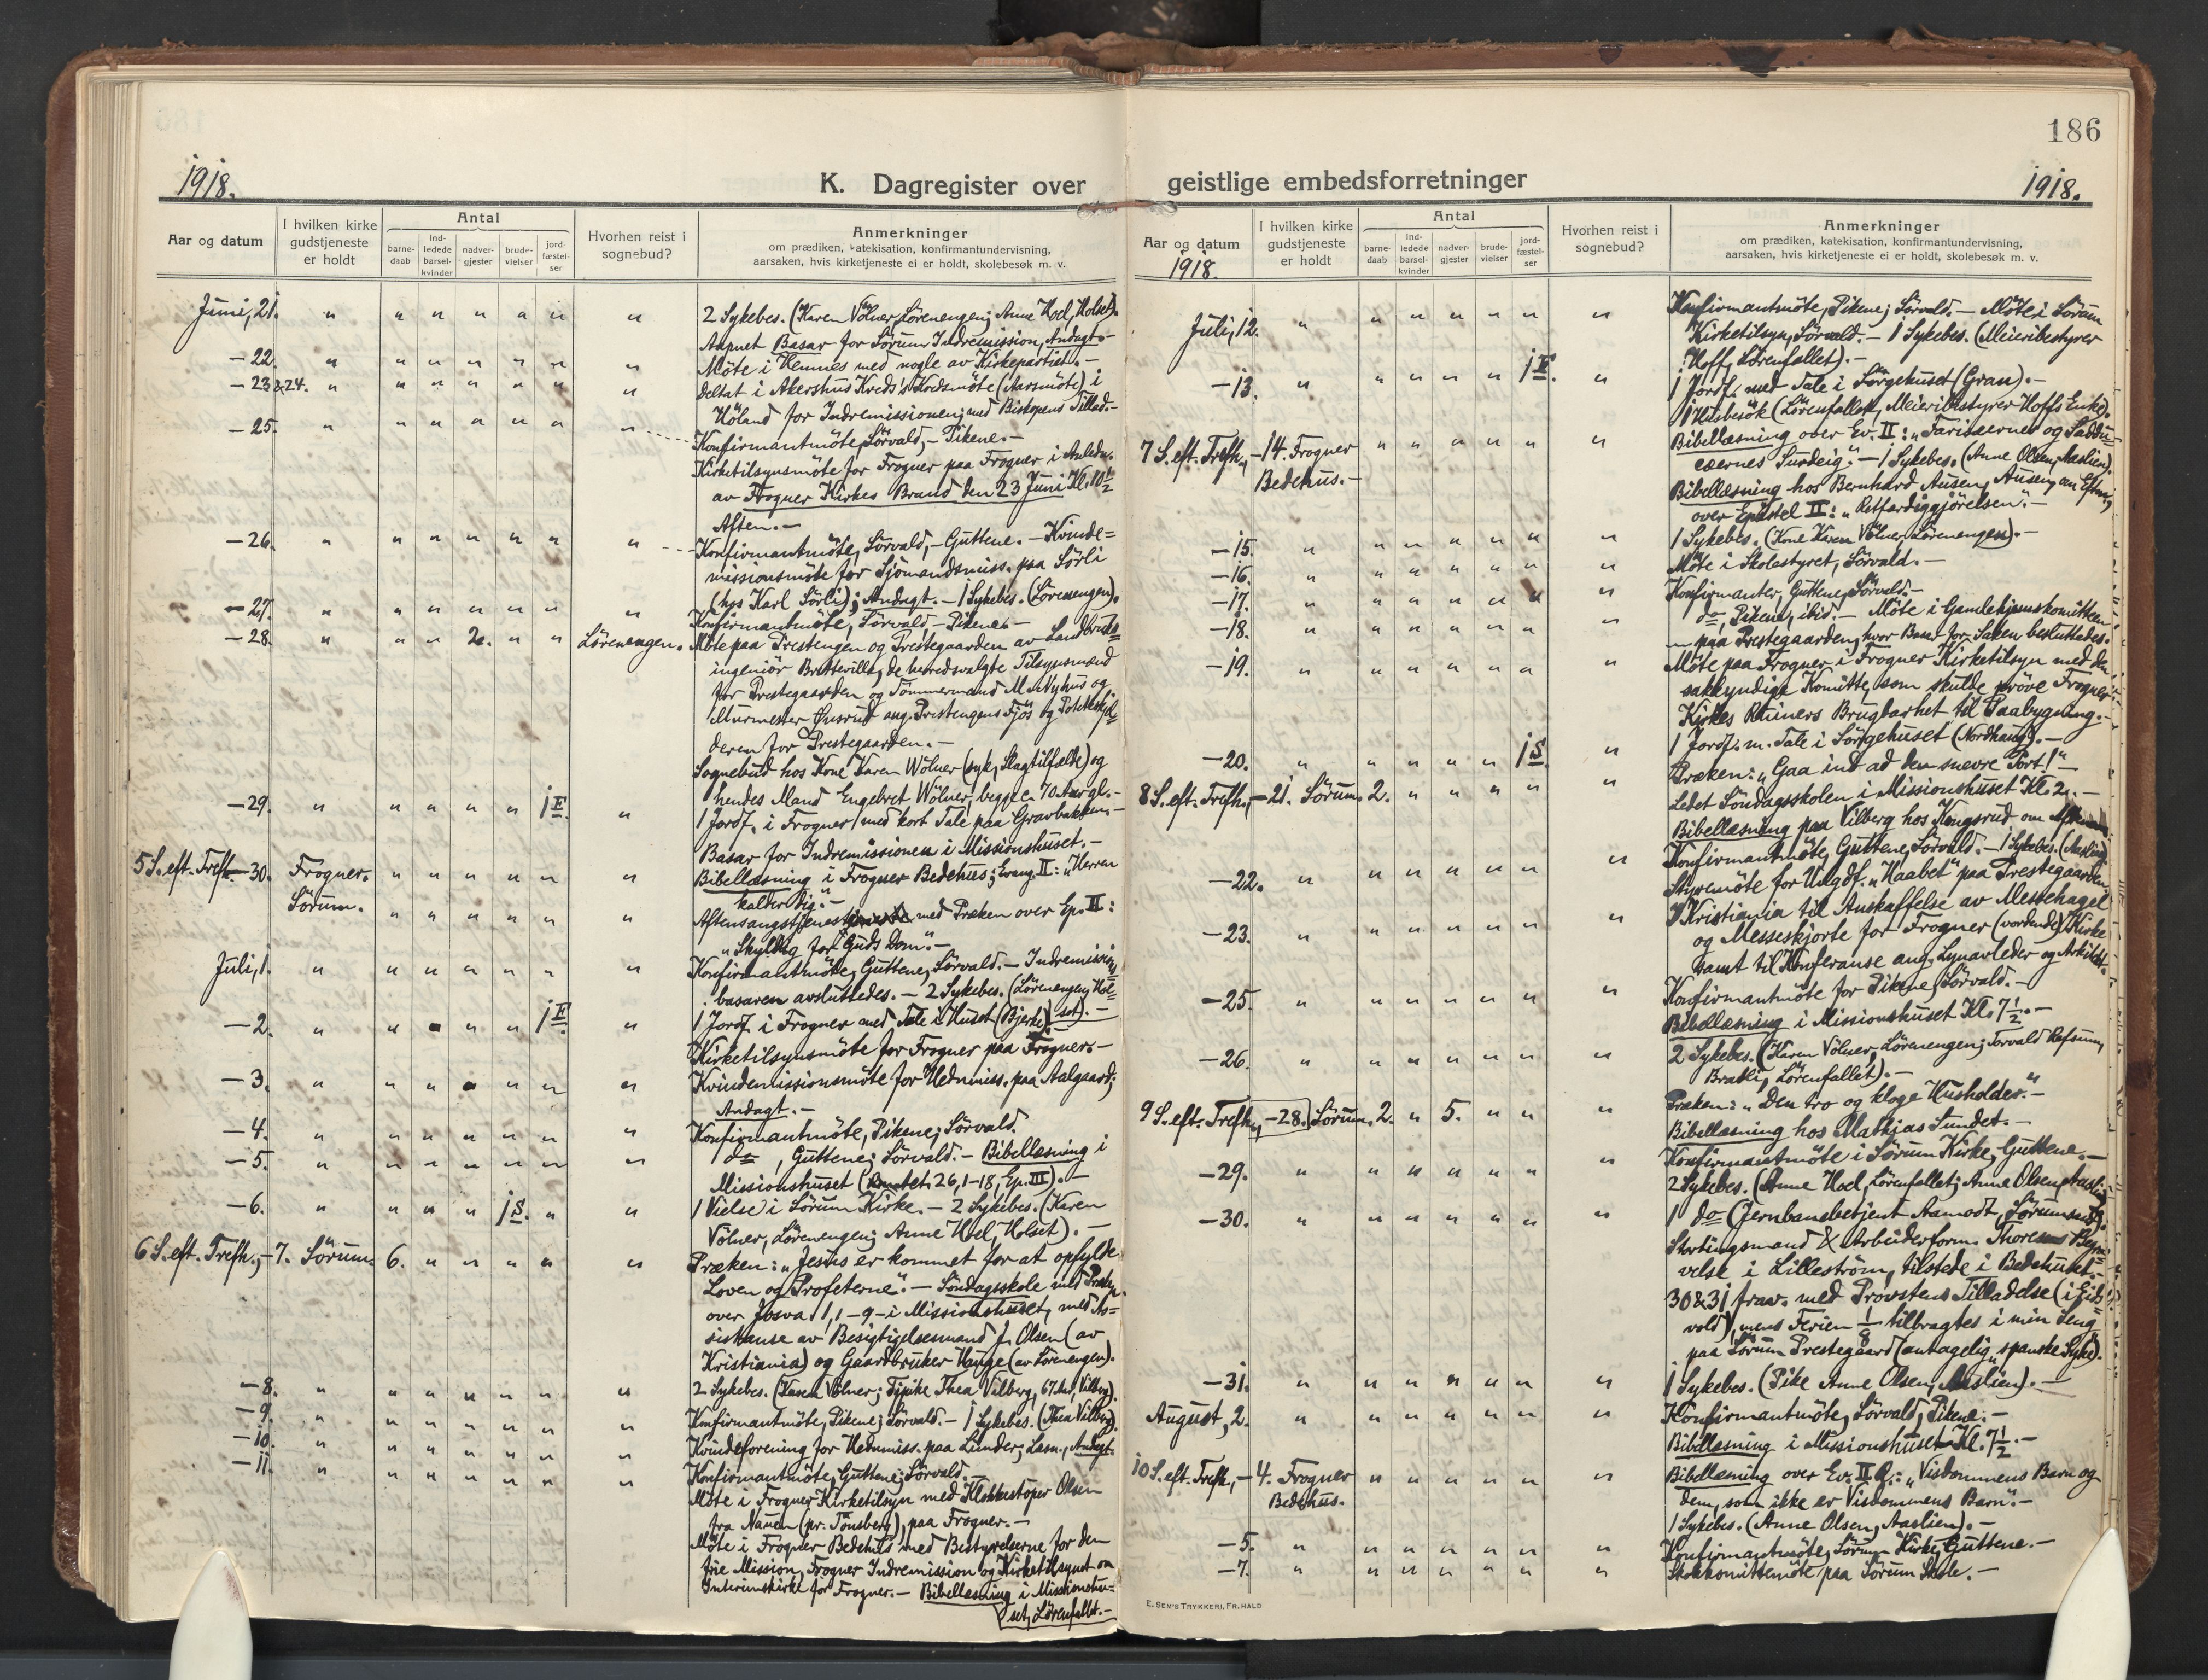 186
1918.
K. Dagregister over
geistlige embedsforretninger
1918.
Aar og datum
I hvilken kirke gudstjeneste er holdt
Antal
barne-daab
ind-ledede barsel-kvinder
nadver-gjester
brude-vielser
jord-fæstel-ser
Hvorhen reist i sognebud?
Anmerkninger
om prædiken, katekisation, konfirmantundervisning,
aarsaken, hvis kirketjeneste ei er holdt, skolebesøk m. v.
Juni, 21. " " " " " " " 2 Sykebes. (Karen Völner, Lörenengen; Anne Hoel, Holset).
Aapnet Basar for Sörum Indremission, Andagt.-
-22. " " " " " " " Möte i Hemnes med nogle av Kirkepartiet.-
-23&24. " " " " " " " Deltat i Akershus Kreds's Kredsmöte (Aarsmöte) i
Höland for Indremissionen; med Biskopens Tillad.-
-25. " " " " " " " Konfirmantmöte, Sörvald,- Pikene.-
Kirketilsynsmöte for Frogner paa Frogner i Anledn.
av Frogner Kirkes Brand den 23 Juni Kl. 10½
Aften.-
-26. " " " " " " " Konfirmantmöte, Sörvald,- Guttene.- Kvinde=
missionsmöte for Sjömandsmiss. paa Sörli
(hos Karl Sörli); Andagt.- 1 Sykebes. (Lörenengen).
-27. " " " " " " " Konfirmantmöte, Sörvald,- Pikene.-
-28. " " " 2. " " Lörenengen. Möte paa Prestengen og Prestegaarden av Landbruks=
ingeniör Bretteville, de herredsvalgte Tilsynsmænd
for Prestegaarden og Tömmermand M. Nyhus og
Murmester ang. Prestengens Fjös og
deren for Prestegaarden.-
Sognebud hos Kone Karen Wölner (syk, Slagtilfælde) og
hendes Mand Engebret Wölner, begge c. 70 Aar gl.-
-29. " " " " " 1 F. " 1 Jordf. i Frogner med kort Tale paa Gravbakken.-
Basar for Indremissionen i Missionshuset.-
5 S. eft. Trefh.-30. Frogner. " " " " " " Bibellæsning i Frogner Bedehus; Evang. II: "Herren
kalder dig."-
Sörum. " " " " " " Aftensangstjeneste med Præken over Ep. II:
"Skyldig for Guds Dom."-
Juli, 1. " " " " " " " Konfirmantmöte, Guttene, Sörvald.- Indremissions
basaren avsluttedes.- 2 Sykebes. (Lörenengen, Hol=
-2. " " " " " 1 F. " 1 Jordf. i Frogner med Tale i Huset (Bjerke). set).-
Kirketilsynsmöte for Frogner paa Frogner.-
-3. " " " " " " " Kvindemissionsmöte for Hedmiss. paa Aalgaard;
Andagt.-
-4. " " " " " " " Konfirmantmöte, Pikene, Sörvald.
-5. " " " " " " " 1 do, Guttene; Sörvald.- Bibellæsning i
Missionshuset ( 26, 1-18, Ep. III).-
-6. " " " " 1 S. " " 1 Vielse i Sörum Kirke.- 2 Sykebes. (Karen
Völner, Lörenengen; Anne Hoel, Holset).-
6 S. eft. Trefh.,-7. Sörum. 6. " " " " " Præken: "Jesus er kommet for at opfylde
Loven og Profeterne."- Söndagsskole med Præk.
over Josva 1, 1-9- i Missionshuset, med As=
sistanse av Besigtigelsesmand J. Olsen (av
Kristiania) og Gaardbruker Hauge (av Lörenengen).
-8. " " " " " " " 2 Sykebes. (Karen Völner; Pike Thea Vilberg, 67 Aar, Vilberg).
-9. " " " " " " " Konfirmantmöte, Pikene; Sörvald.- 1 Sykebes. (Thea Vilberg).
-10. " " " " " " " Kvindeforening for Hedmiss. paa Lunder; Læsn., Andagt.
-11. " " " " " " " Konfirmantmöte; Guttene; Sörvald.-
Möte i Frogner Kirketilsyn med Klokkestöper Olsen
fra Nauen (pr. Tönsberg), paa Frogner.-
Möte i Frogner Bedehus med Bestyrelserne for den
frie Mission, Frogner Indremission og Kirketilsynet om
Interimskirke for Frogner.- Bibellæsning i Missionshu=
set, Lörenfallet.-
Aar og datum
1918.
I hvilken kirke gudstjeneste er holdt
Antal
barne-daab
ind-ledede barsel-kvinder
nadver-gjester
brude-vielser
jord-fæstel-ser
Hvorhen reist i sognebud?
Anmerkninger
om prædiken, katekisation, konfirmantundervisning,
aarsaken, hvis kirketjeneste ei er holdt, skolebesøk m. v.
Juli, 12. " " " " " " " Konfirmantmöte, Pikene; Sörvald.- Möte i Sörum
Kirketilsyn, Sörvald.- 1 Sykebes. (Meieribestyrer
Hoff, Lörenfallet).-
-13. " " " " " 1 F. " 1 Jordf. med Tale i Sörgehuset (Gran).-
1 Husbesök (Lörenfallet, Meieribestyrer Hoffs Enke).
7 S. eft. Trefh.,-14. Frogner " " " " " " Bibellæsning over Ev. II: "Farisæernes og Saddu=
Bedehus.- cæernes Surdeig."- 1 Sykebes. (Anne Olsen, Aaslien).
Bibellæsning hos Bernhard Ausen, Ausen, om Eftm.,
over Epistel II: "Retfærdiggjörelsen."-
-15. " " " " " " " 1 Sykebes. (Kone Karen Völner, Lörenengen).-
-16. " " " " " " " Möte i Skolestyret, Sörvald.-
-17. " " " " " " " Konfirmanter, Guttene, Sörvald.-
-18. " " " " " " " do, Pikene, ibid.- Möte i Gamlehjemskomitteen
paa Prestegaarden, hvor Basar for Saken besluttedes.
-19. " " " " " " " Möte paa Frogner i Frogner Kirketilsyn med den
sakkyndige Komitte, som skulde pröve Frogner
Kirkes Ruiners Brugbarhet til Paabygning.-
-20. " " " " " 1 S. " 1 Jordf. m. Tale i Sörgehuset (Nordhaug).-
8 S. eft. Trefh.,-21. Sörum. 2. " " " " " Præken: "Gaa ind ad den snevre Port!"-
Ledet Söndagsskolen i Missionshuset Kl. 2.-
Bibellæsning paa Vilberg hos Kongsrud om Aftenen.
-22. " " " " " " " Konfirmantmöte, Guttene, Sörvald.- 1 Sykebes. (Aaslien).
Styremöte for Ungdf. "Haabet" paa Prestegaarden.
-23. " " " " " " " I Kristiania til Anskaffelse av Messehagel
og Messeskjorte for Frogner (vordende) Kirke
samt til Konferanse ang. Lynavleder og Arkitekt.
-25. " " " " " " " Konfirmantmöte for Pikene, Sörvald.-
Bibellæsning i Missionshuset Kl. 7½.-
-26. " " " " " " " 2 Sykebes. (Karen Völner, Lörenengen; Torvald Refsum,
Bratli, Lörenfallet).-
9 S. eft. Trefh.,-28. Sörum. 2. " 5. " " " Præken: "Den tro og kloge Husholder."-
Bibellæsning hos Mathias Sundet.-
-29. " " " " " " " Konfirmantmöte i Sörum Kirke, Guttene.-
2 Sykebes. (Anne Hoel, Lörenfallet; Anne Olsen, Aaslien)
-30. " " " " " " " 1 do (Jernbanebetjent Aamodt, Sörumsand).
Stortingsmand & Arbeiderform. Thoresens Begra=
velse i Lilleström, tilstede i Bedehuset.
30&31 frav. med Provstens Tilladelse (i Eids=
vold), mens Ferien 1/8 tilbragtes i min Seng
paa Sörum Prestegaard (antagelig "spanske Syke").
-31. " " " " " " " 1 Sykebes. (Pike Anne Olsen, Aaslien).-
August, 2. " " " " " " " Konfirmantmöte, Sörvald, Pikene.-
Bibellæsning i Missionshuset Kl. 7½.-
10 S. eft. Trefh.,-4. Frogner " " " " " " Bibellæsning over Ev. II R.: "Visdommens Barn og
Bedehus. dem, som ikke er Visdommens Barn."-
1 Sykebes. (Anne Olsen, Aaslien).-
-5. " " " " " " " Konfirmantmöte, Sörum Kirke, Guttene.-
-7. " " " " " " " Skolekomitemöte paa Sörum Skole.-
E. SEM'S TRYKKERI, FR.HALD